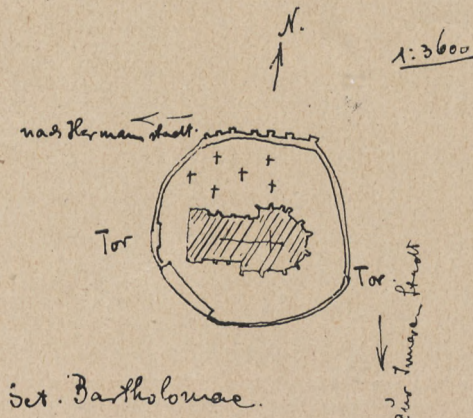 N.
1:3600
nach Hermannstadt.
Tor
Tor
zur Inneren Stadt
Sct. Bartholomae.